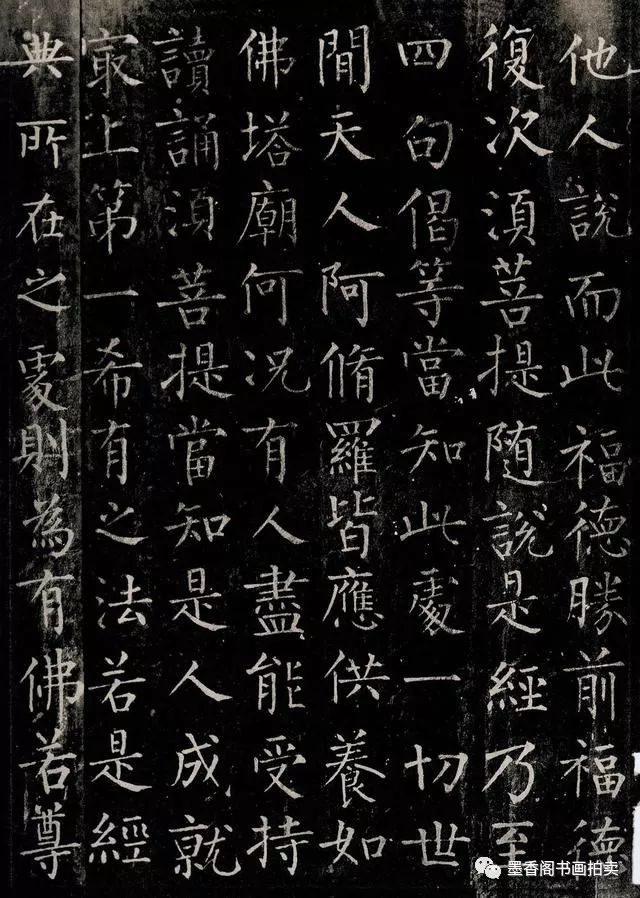 他人說而此福德勝前福德
復次須菩提随說是經乃至
四句偈等當知此處一切世
間天人阿脩羅皆應供養如
佛塔廟何况有人盡能受持
讀誦須菩提當知是人成就
冣上第一希有之法若是經
典所在之處則為有佛若尊
墨香阁书画拍卖